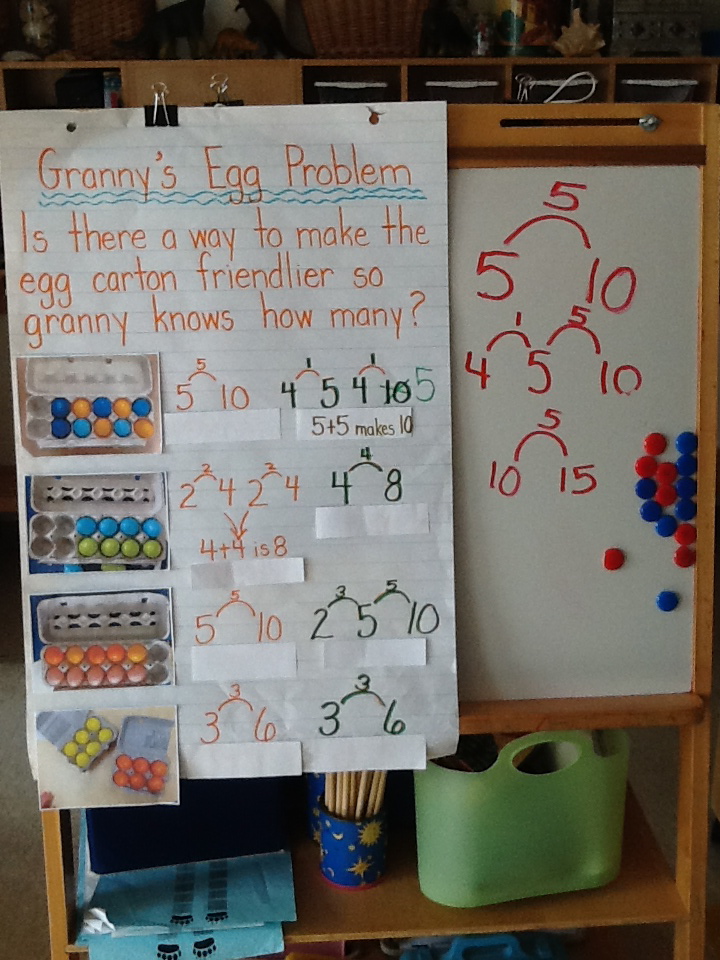 Granny's Egg Problem
Is there a way to make the
egg carton friendlier so
granny knows how many?
5
5 10
1 1
4 5 4 10 5
5+5 makes 10
2 2
2 4 2 4
4+4 is 8
4
4 8
5
5 10
3 5
2 5 10
3
3 6
3
3 6
5
5 10
1 5
4 5 10
5
10 15